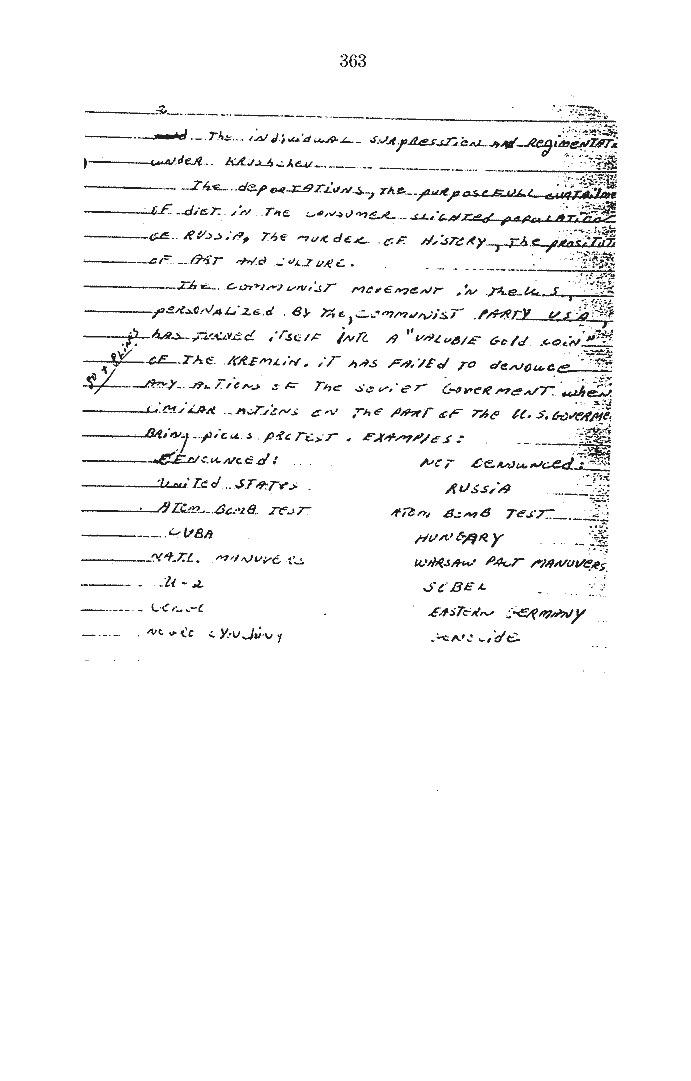 363
2
The individual surpresstion and Regimentati
under Krushchev.
The deportations, the purposefull curtailme
of diet in the consumer slighted population
of Russia, the murder of history, the prostitut
of art and culture.
The communist movement in the U.S.,
personalized by the, Communist Party U.S.A,
has turned itself into a "valuble gold coin"
of the Kremlin. it has failed to denouce
any actions of the Soviet Goverment when
similar actions on the part of the U.S. Goverme
bring pious protest. Examples:
Denounced: Not denounced:
United States Russia
Atom bomb test Atom bomb test
Cuba Hungary
N.A.T.O. manuvers Warsaw Pact manuvers
U-2 Sobel
Eastern Germany
Negro lynching Genocide